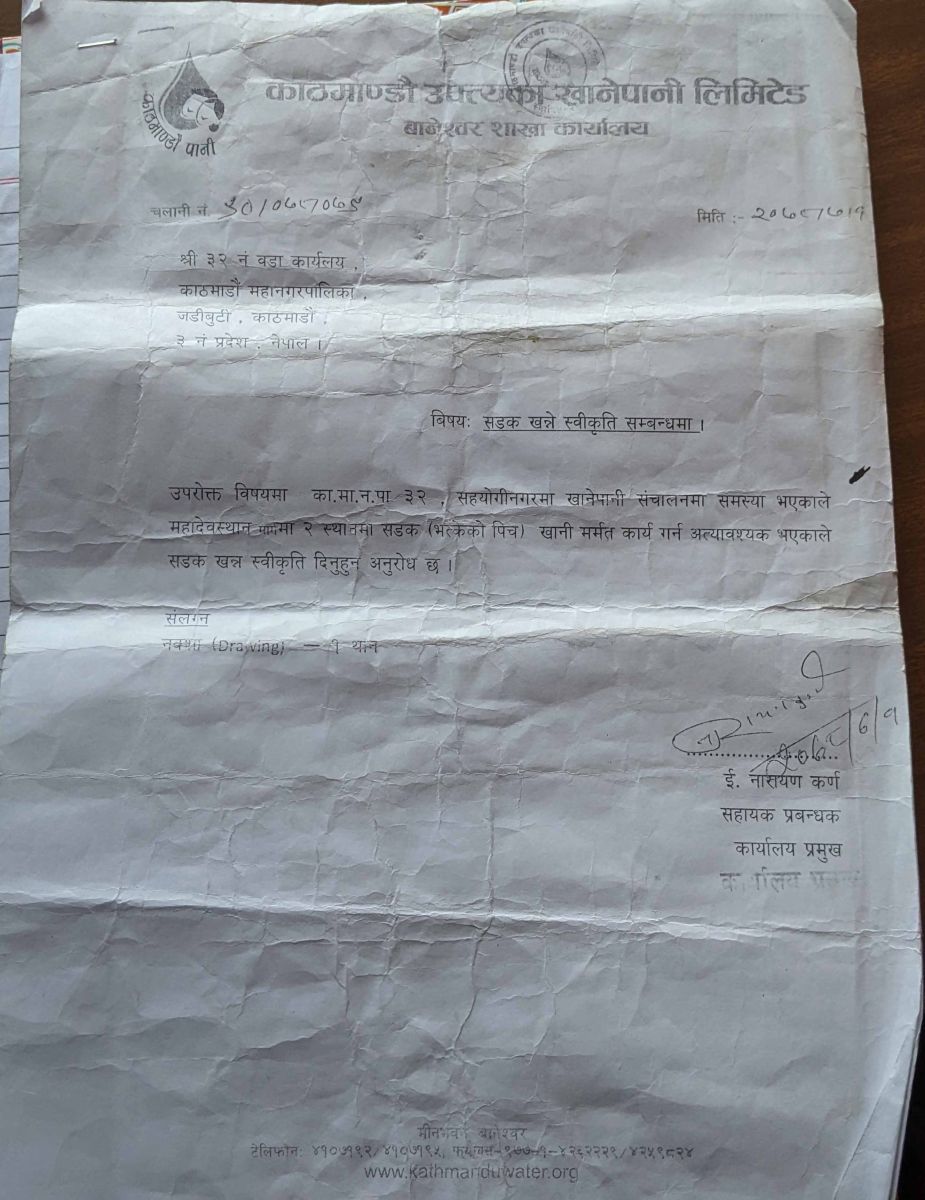 काठमाण्डौ उपत्यका खानेपानी लिमिटेड
बानेश्वर शाखा कार्यालय
काठमाण्डौ पानी
चलानी नं.
मिति :-
श्री ३२ नं वडा कार्यलय ,
काठमाडौं महानगरपालिका ,
जडीबुटी , काठमाडौं ,
३ नं प्रदेश , नेपाल ।
बिषयः सडक खन्ने स्वीकृति सम्बन्धमा ।
उपरोक्त विषयमा का.मा.न.पा ३२ , सहयोगीनगरमा खानेपानी संचालनमा समस्या भएकाले
महादेवस्थान मार्गमा २ स्थानमा सडक (भत्केको पिच) खानी मर्मत कार्य गर्न अत्यावश्यक भएकाले
सडक खन्न स्वीकृति दिनुहुन अनुरोध छ ।
संलग्न
नक्शा (Drawing) – १ थान
ई. नारायण कर्ण
सहायक प्रबन्धक
कार्यालय प्रमुख
मीनभवन बानेश्वर
टेलिफोनः ४१०७१९२/४१०७१९५,
www.kathmanduwater.org